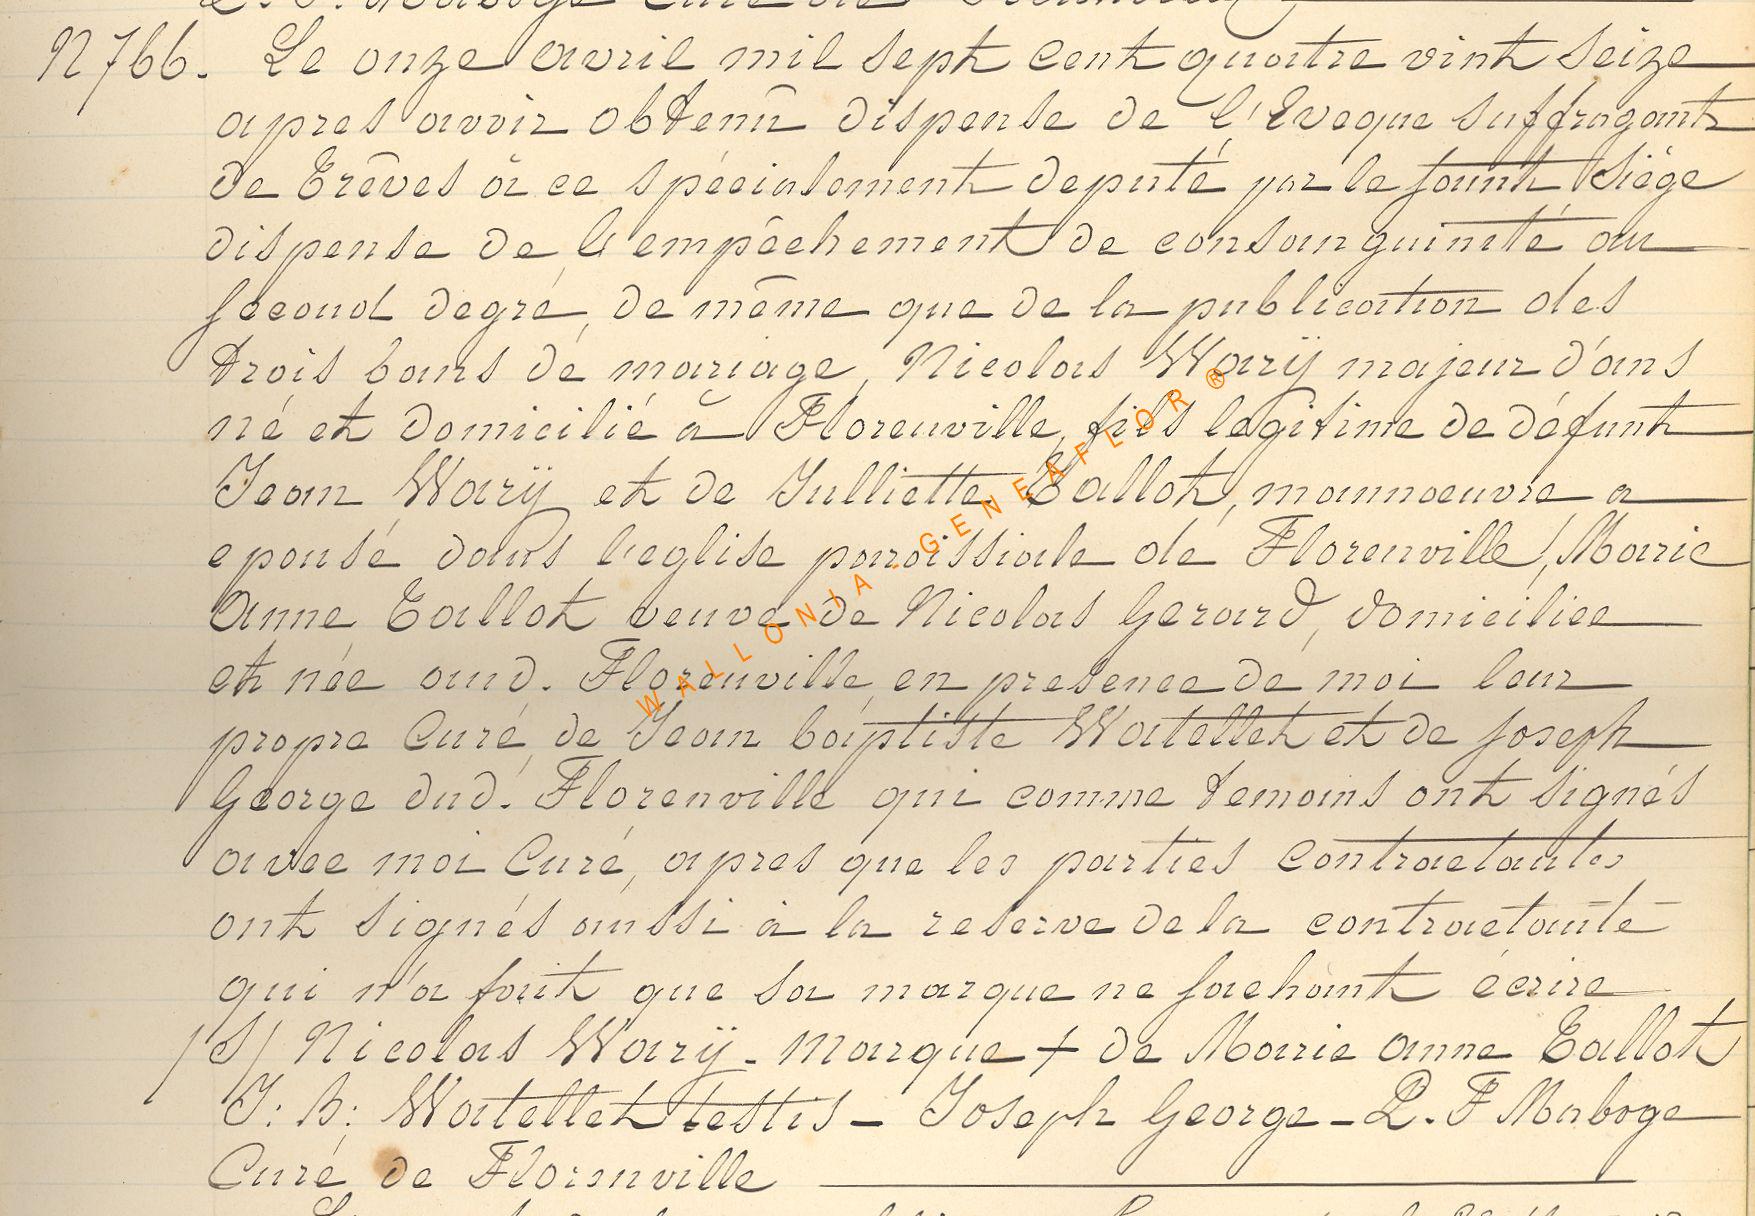 N 766. Le onze avril mil sept cent quatre vint seize
apres avoir obtenu dispense de l'Eveque suffragant
de Trêves à ce spécialement deputé par le saint siége
dispense de l'empêchement de consanguinité au
second degré, de même que de la publication des
trois bans de mariage, Nicolas Warÿ majeur d'ans
né et domicilié à Florenville, fils legitime de défunt
Jean Warÿ et de Julliette Tallot, mannoeuvre a
epousé dans l'eglise paroissiale de Florenville, Marie
anne Tallot veuve de Nicolas Gerard, domiciliee
et née aud. Florenville, en presence de moi leur
propre Curé, de Jean baptiste Watellet et de Joseph
George dud. Florenville qui comme temoins ont signés
avec moi Curé, apres que les parties contractantes
ont signés aussi à la reserve de la contractante
qui n'a fait que sa marque ne sachant écrire
/S/ Nicolas Warÿ - Marque + de Marie anne Tallot
J: B: Watellet testis - Joseph George - P. F Maboge
Curé de Florenville
WALLONIA - GENEAFLOR ®